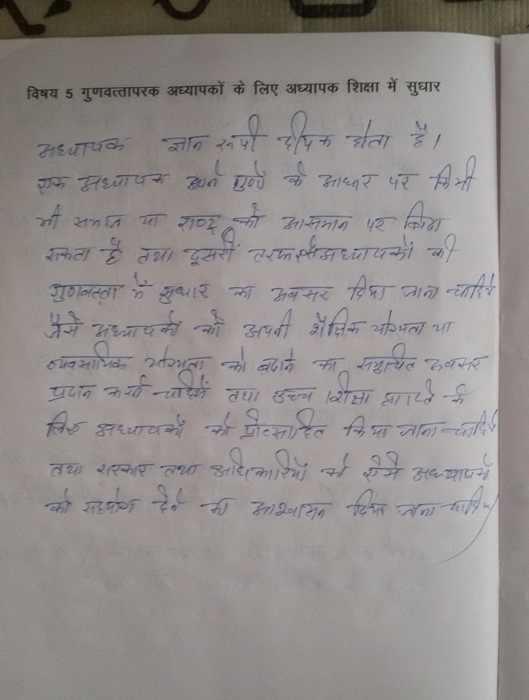 विषय 5 गुणवत्तापरक अध्यापकों के लिए अध्यापक शिक्षा में सुधार
अध्यापक ज्ञान रूपी दीपक होता है।
एक अध्यापक अपने गुणों के आधार पर किसी
भी समाज या राष्ट्र को आसमान पर बिठा
सकता है तथा दूसरी तरफ अध्यापकों की
गुणवत्ता में सुधार का अवसर दिया जाना चाहिये
जैसे अध्यापकों को अपनी शैक्षिक योग्यता या
व्यवसायिक योग्यता को बढ़ाने का समुचित अवसर
प्रदान करने चाहिये तथा उच्च शिक्षा प्राप्ति के
लिए अध्यापकों को प्रोत्साहित किया जाना चाहिये
तथा सरकार तथा अधिकारियों को ऐसे अध्यापकों
को सहयोग देने का आश्वासन दिया जाना चाहिए